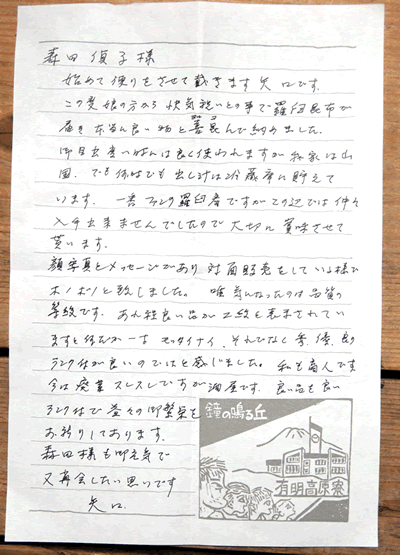 森田 偵子 様
始めて便りをさせて戴きます 矢口です.
この度娘の方から 快気祝いとの事で羅臼昆布が
届き 本当に良い物と 善昆んで納めました.
良く使われますが 我家は山
国. でも 何はでも 出し汁は 冷蔵庫に貯えて
います. 一番 ランク 羅臼産ですがこの辺では 仲々
入手出来ませんでしたので 大切に 賞味させて
貰います.
顔写真とメッセージがあり 対面販売をしている様で
ホノボノと致しました. 唯 気になったのは 品質の
等級です. あれ程良い品が 2級と表まされてい
ますと 何だか モッタイナイ. それでなく 秀、優、良の
ランク付が良いのではと感じました. 私も商人です
今は廃業スレスレですが 酒屋です. 良い品を良い
ランク付で 益々の御繁栄を
お祈りしております.
森田様も御元気で
又再会したい思いです
矢口.
鐘の鳴る丘
有明高原寮